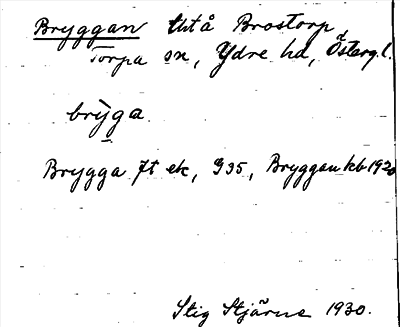 Bryggan utå Brostorp
Torpa sn, Ydre hd, Östergl.
brỳga
Brygga Jt ek, G35, Bryggan kb 1920
Stig Stjärne 1930.